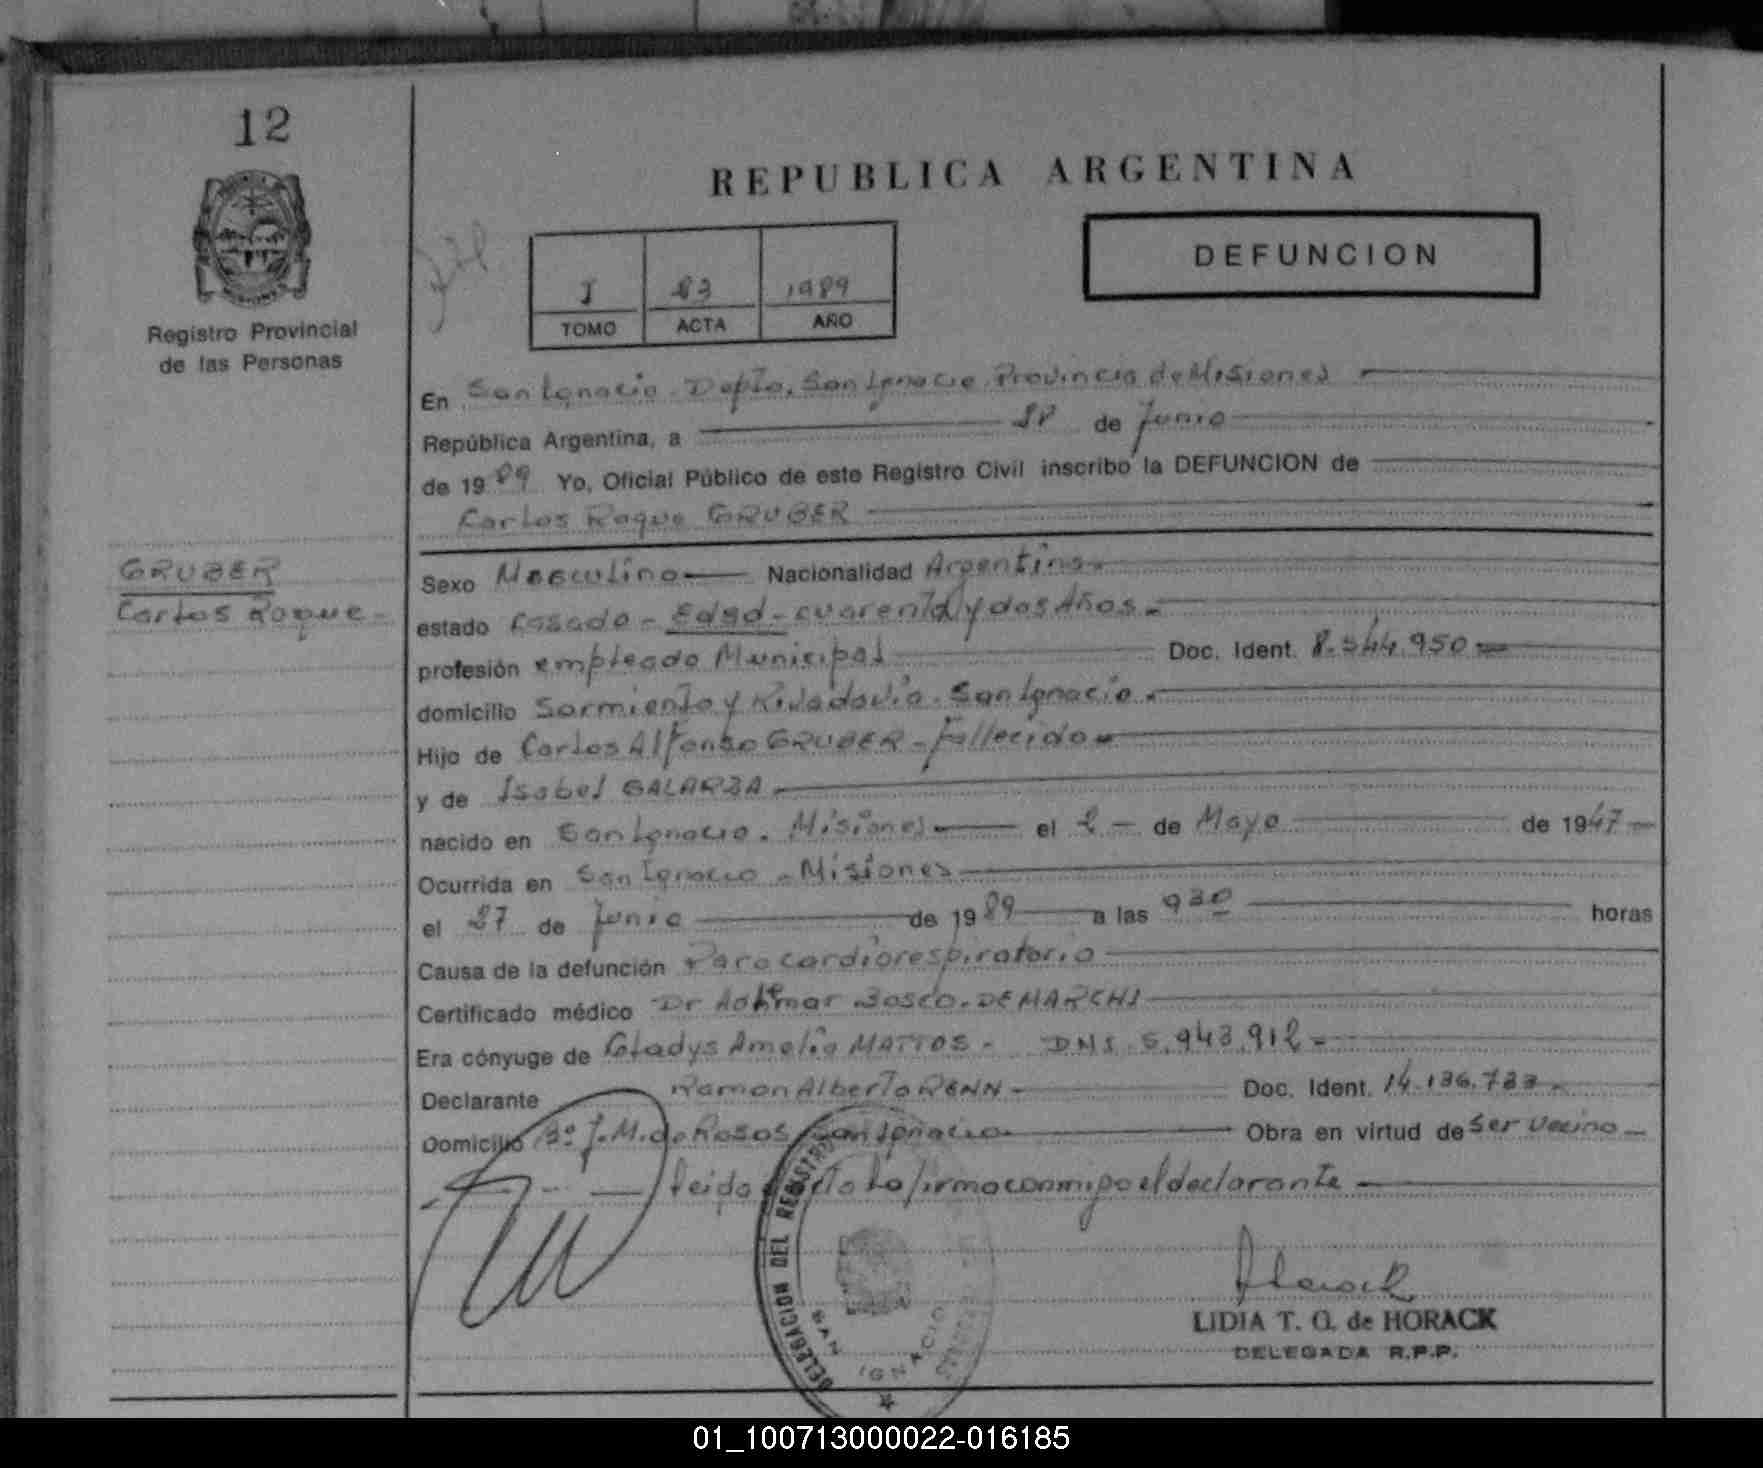 12
REPUBLICA ARGENTINA
DEFUNCION
I 83 1989
TOMO ACTA AÑO
Registro Provincial
de las Personas
En San Ignacio. Depto. San Ignacio. Provincia de Misiones
República Argentina, a 28 de Junio
de 19 89 Yo, Oficial Público de este Registro Civil inscribo la DEFUNCION de
Carlos Roque GRUBER
GRUBER
Carlos Roque -
Sexo Masculino Nacionalidad Argentina
estado Casado - Edad - cuarenta y dos Años -
profesión empleado Municipal Doc. Ident. 8.544.950
domicilio Sarmiento y Rivadavia. San Ignacio.
Hijo de Carlos Alfonso GRUBER - fallecido
y de Isabel GALARZA
nacido en San Ignacio. Misiones el 2 - de Mayo de 1947
Ocurrida en San Ignacio - Misiones
el 27 de Junio de 19 89 a las 9 30 horas
Causa de la defunción Paro cardiorespiratorio
Certificado médico Dr Bosco. DEMARCHI
Era cónyuge de Gladys Amelia MATTOS - DNI. 5.943.912
Declarante Ramon Alberto RENN - Doc. Ident. 14.136.733
Domicilio J. M. de Rosas, San Ignacio Obra en virtud de Ser vecino
leido acta la firma conmigo el declarante
DELEGACION DEL REGISTRO
SAN IGNACIO
LIDIA T. G. de HORACK
DELEGADA R.P.P.
01_100713000022-016185